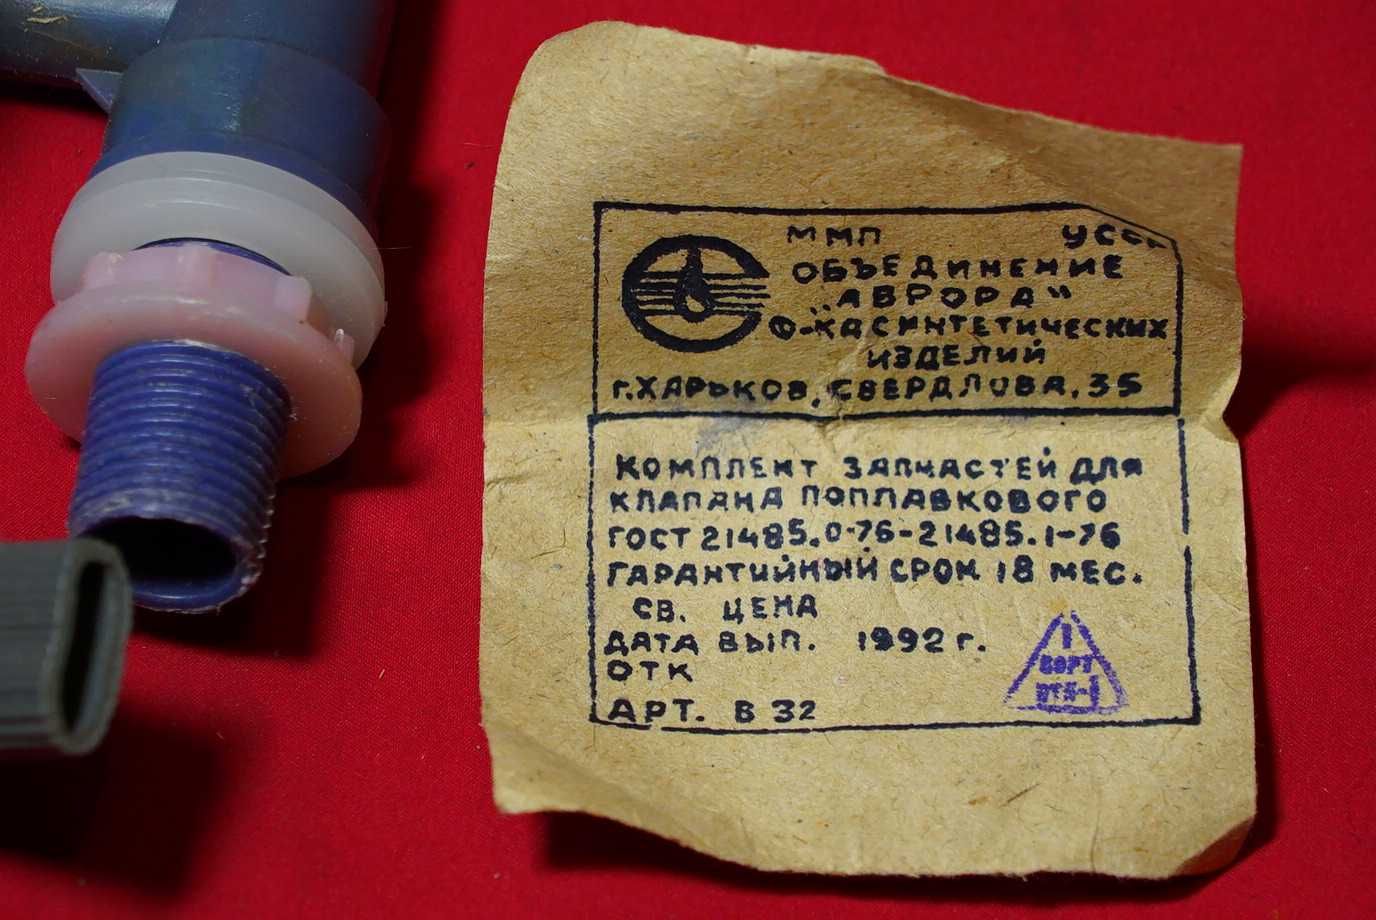 ММП УССР
ОБЪЕДИНЕНИЕ
„АВРОРА"
Ф-КА СИНТЕТИЧЕСКИХ
ИЗДЕЛИЙ
Г.ХАРЬКОВ, СВЕРДЛОВА, 35
КОМПЛЕКТ ЗАПЧАСТЕЙ ДЛЯ
КЛАПАНА ПОПЛАВКОВОГО
ГОСТ 21485.0-76-21485.1-76
ГАРАНТИЙНЫЙ СРОК 18 МЕС.
СВ. ЦЕНА
ДАТА ВЫП. 1992 г.
ОТК
АРТ. В 32
1
СОРТ